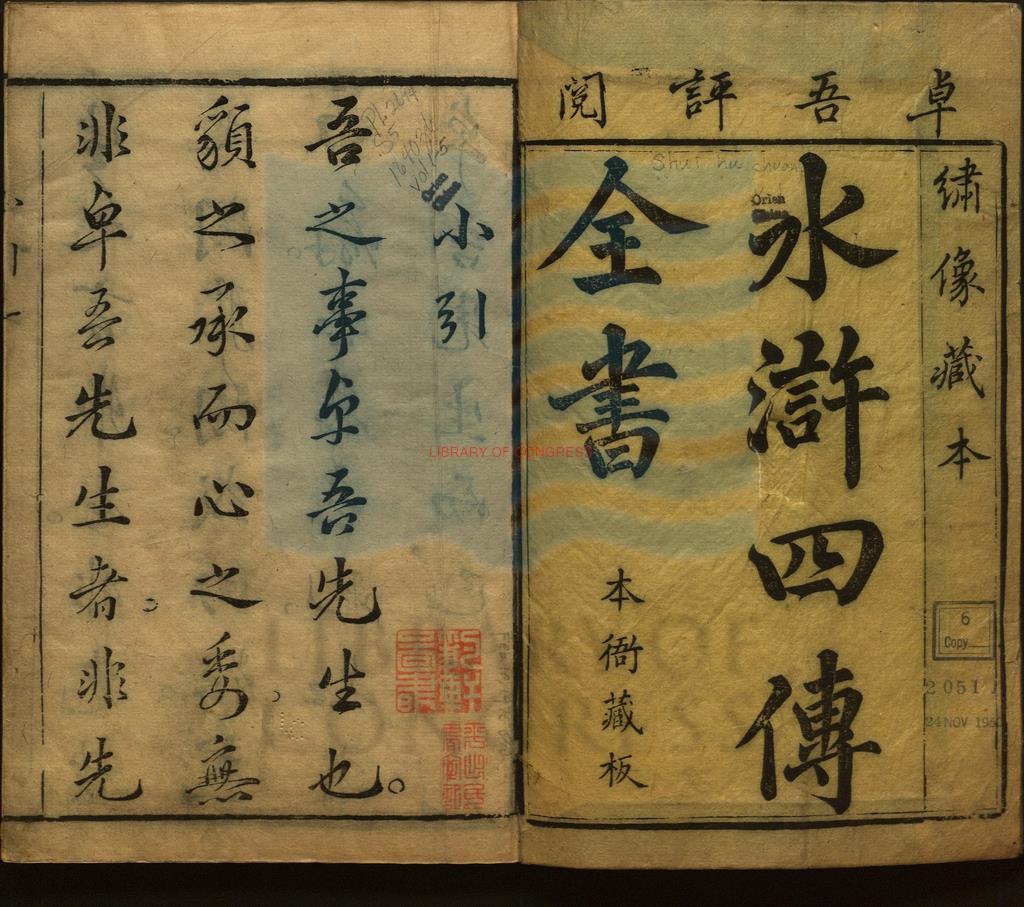 卓吾評閱
繡像藏本
水滸四傳
全書
本衙藏板
Shui hu chuan
Orien
China
6
Copy
2051
24 NOV 195
LIBRARY OF CONGRESS
PL2694
.S5
vol 1-5
Orien
China
小引
吾之事卓吾先生也。
貌之承而心之委，無
非卓吾先生者。非先